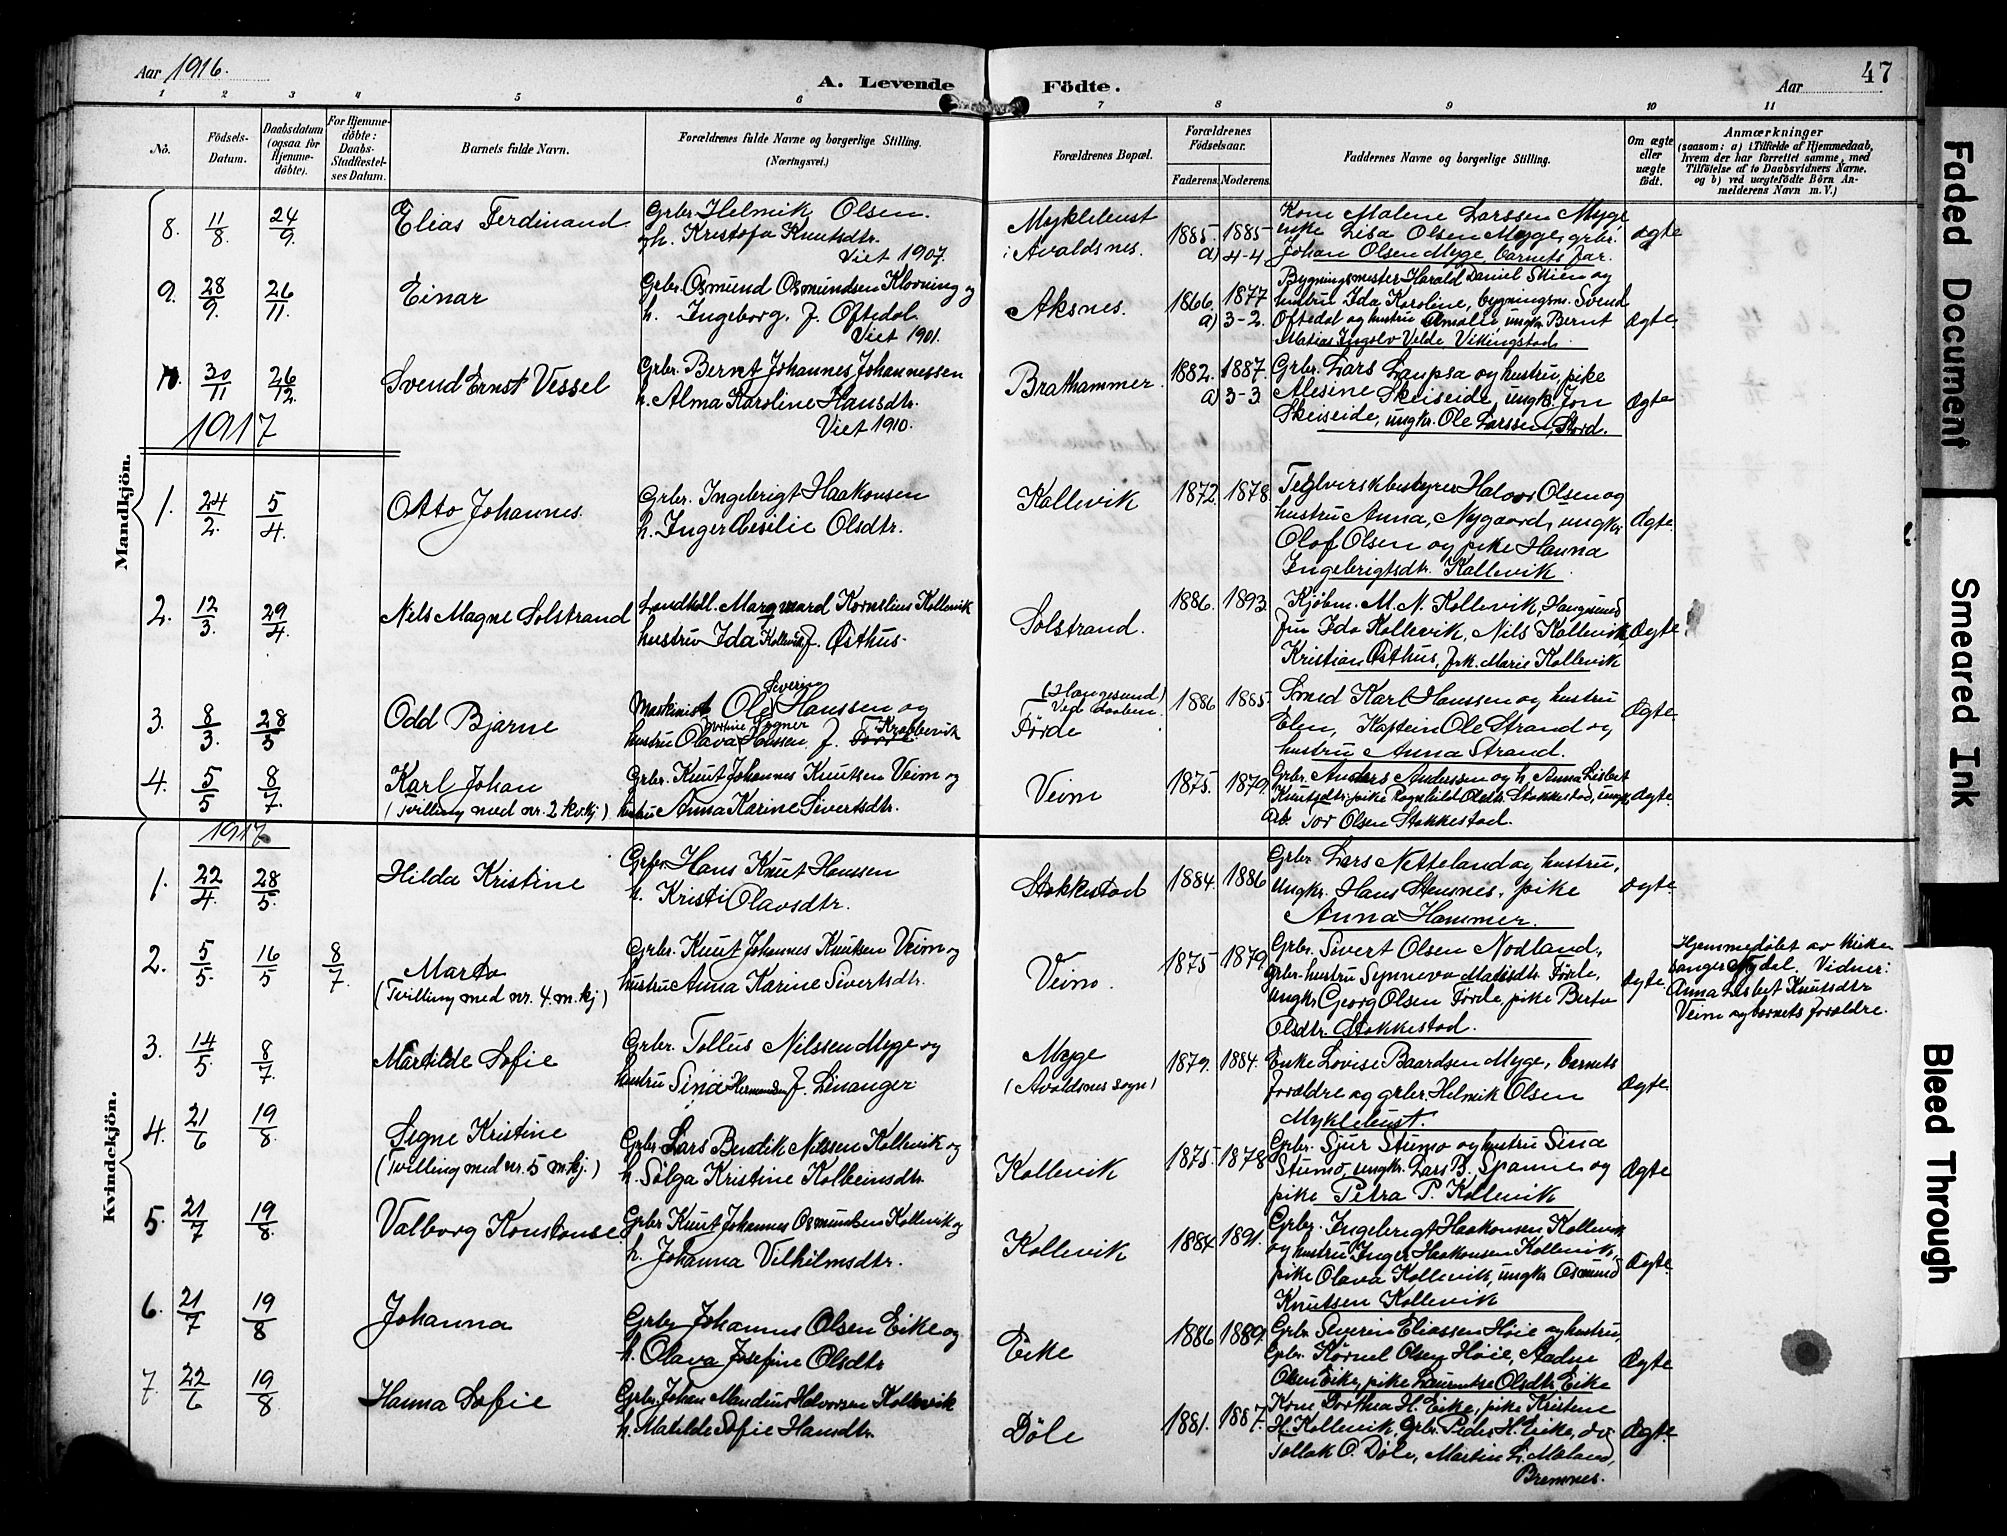 Aar 1916.
A. Levende Födte.
Aar
47
1 2 3 4 5 6 7 8 9 10 11
No.
Födsels-Datum.
Daabsdatum (ogsaa for Hjemme-döbte).
For Hjemme-döbte: Daabs-Stadfæstel-ses Datum.
Barnets fulde Navn.
Forældrenes fulde Navne og borgerlige Stilling. (Næringsvei.)
Forældrenes Bopæl.
Forældrenes Födselsaar.
Faderens. Moderens.
Faddernes Navne og borgerlige Stilling.
Om ægte eller uægte födt.
Anmærkninger
(saasom: a) i Tilfælde af Hjemmedaab, hvem der har forrettet samme, med Tilföielse af to Daabsvidners Navne, og b) ved uægtefödte Börn An-melderens Navn m. V.)
Mandkjön.
8. 11/8 24/9 Elias Ferdinand
Grbr. Helmik Olsen.
og h. Kristofa Knutsdtr.
Viet 1907.
Myklebust
i Avaldsnes.
1885. 1885
a) 4-4
Kone Malene Larssen Myge,
enke Lisa Olsen Myge, grbr.
Johan Olsen Myge, barnets far.
ægte
9. 28/9 26/11 Einar
Grbr. Osmund Osmundsen Klovning og
h. Ingeborg, f. Oftedal
Viet 1901.
Aksnes.
1866. 1877
a) 3-2.
Bygningsmester Harald Daniel Skien og
hustru Ida Karoline, bygningsm. Svend
Oftedal og hustru Amalie, ungkr. Bernt
Matias Ingolv Velde, Vikingstad.
Ægte
10. 30/11 26/12 Svend Ernst Vessel
Grbr. Bernt Johannes Johannessen
h. Alma Karoline Hansdtr.
Viet 1910.
Brathammer.
1882. 1887.
a) 3-3
Grbr. Lars Laupsa og hustru, pike
Alesine Skeiseide, ungk. Jon
Skeiseide, ungkr. Ole Larssen, Stord.
Ægte
1917
1. 24/2. 5/4 Otto Johannes.
Grbr. Ingebrigt Haakonsen
h. Inger Cecilie Olsdtr.
Kallevik
1872 1878.
Teglverksbestyrer Halvor Olsen og
hustru Anna, Nygaard, ungkr.
Olaf Olsen og pike Hanna
Ingebrigtsdtr. Kallevik.
Ægte.
2. 12/3 29/4 Nils Magne Solstrand
Landhdl. Marqvard Kornelius Kallevik
hustru Ida Kallevik f. Østhus.
Solstrand.
1886. 1893.
Kjøbm. M. N. Kallevik, Haugesund
fru Ida Kallevik, Nils Kallevik,
Kristian Østhus, frk. Marie Kallevik
Ægte.
3. 8/3 28/5 Odd Bjarne
Maskinist Ole Severin Hanssen og
hustru Olava Hanssen, f. Førde Krabbevik
(Haugesund)
Ved daaben
Førde
1886 1885.
Smed Karl Hanssen og hustru
Elen, Kaptein Ole Strand og
hustru Anna Strand.
Ægte.
4. 5/5 8/7. Karl Johan
(Tvilling med nr. 2 kv.kj.)
Grbr. Knut Johannes Knutsen Veim og
hustru Anna Karine Sivertsdtr.
Veim
1875. 1879.
Grbr. Anders Anderssen og h. Anna Lisbet
Knutsdtr. pike Ragnhild Olsdtr. Stokkestad, ungk.
Tor Olsen Stokkestad.
ægte
Kvindekjön.
1917
1. 22/4. 28/5. Hilda Kristine
Grbr. Hans Knut Hanssen
h. Kristi Olavsdtr.
Stokkestad
1884. 1886
Grbr. Lars Netteland og hustru,
ungkr. Hans Stensnes, pike
Anna Hammer.
ægte.
2. 5/5. 16/5 8/7. Marta
(Tvilling med nr. 4. m.kj.)
Grbr. Knut Johannes Knutsen Veim og
hustru Anna Karine Sivertsdtr.
Veim.
1875 1879.
Grbr. Sivert Olsen Nodland,
grbr. hustru Synneva Matisdtr. Førde,
ungkr. Georg Olsen Førde, pike Berta
Olsdtr. Stokkestad.
ægte
Hjemmedøbt av kirke
sanger Nydal. Vidner:
Anna Lisbet Knutsdtr
Veim og barnets forældre.
3. 14/5. 8/7. Martilde Sofie
Grbr. Tollus Nilssen Myge og
hustru Sina f. Linanger
Myge
(Avaldsnes sogn)
1879. 1884.
Enke Lovise Baardsen Myge, barnets
forældre og grbr. Helmik Olsen
Myklebust.
Ægte
4. 21/6 19/8. Signe Kristine
(Tvilling med nr. 5 m.kj.)
Grbr. Lars Bendik Nilssen Kallevik og
h. Solga Kristine Kolbeinsdtr.
Kallevik
1875. 1878
Grbr. Sjur Stumo og hustru Sina
Stumo, ungkr. Lars B. Spanne og
pike Petra P. Kallevik
Ægte
5. 21/7 19/8. Valborg Konstanse
Grbr. Knut Johannes Osmundsen Kallevik og
h. Johanna Vilhelmsdtr.
Kallevik
1884 1891.
Grbr. Ingebrigt Haakonsen Kallevik
og hustru Inger Haakonsen Kallevik,
pike Olava Kallevik, ungkr Osmund
Knutsen Kallevik
Ægte.
6. 21/7 19/8 Johanna
Grbr. Johannes Olsen Eike og
h. Olava Josefine Olsdtr
Eike
1886 1889.
Grbr. Severin Eliassen Høie og hustru,
Grbr. Kornel Olsen Høie, Aadne
Olsen Eike, pike Laurentse Olsdtr. Eike
Ægte
7. 22/6 19/8 Hanna Sofie
Grbr. Johan Mandius Halvorsen Kallevik
h. Matilde Sofie Hansdtr.
Døle
1881. 1887.
Kone Dorthea H. Eike, pike Kristine
H. Kallevik, Grbr. Peder H. Eike, do
Tollak O. Døle, Martin L. Mæland,
Bremnes.
Ægte.
Faded Document
Smeared Ink
Bleed Through